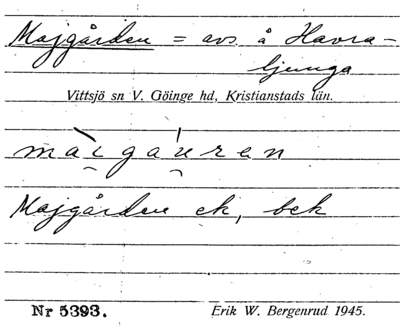 Majgården = avs. å Havra-
ljunga
Vittsjö sn V. Göinge hd, Kristianstads län.
mài̯gáu̯ren
Majgården ek, bek
Nr 5393.
Erik W. Bergenrud 1945.